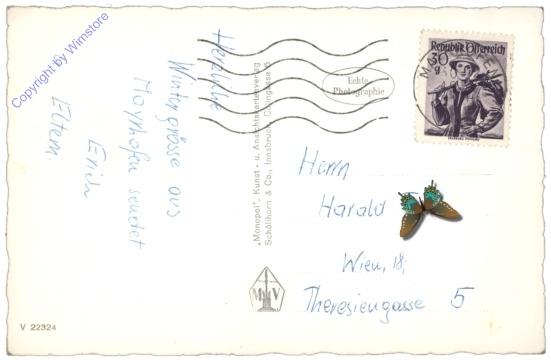 Copyright by Wimstore
Herzliche
Wintergrüsse aus
Mayrhofen sendet
Erich
Eltern
"Monopol", Kunst- u. Ansichtskartenverlag
Schöllhorn & Co., Innsbruck, Colingasse
Echte
Photographie
Republik Österreich
30
g
Herrn
Harald
Wien, 18,
Theresiengasse 5
M V
V 22324